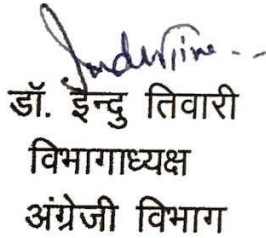 डॉ. ईन्दु तिवारी
विभागाध्यक्ष
अंग्रेजी विभाग